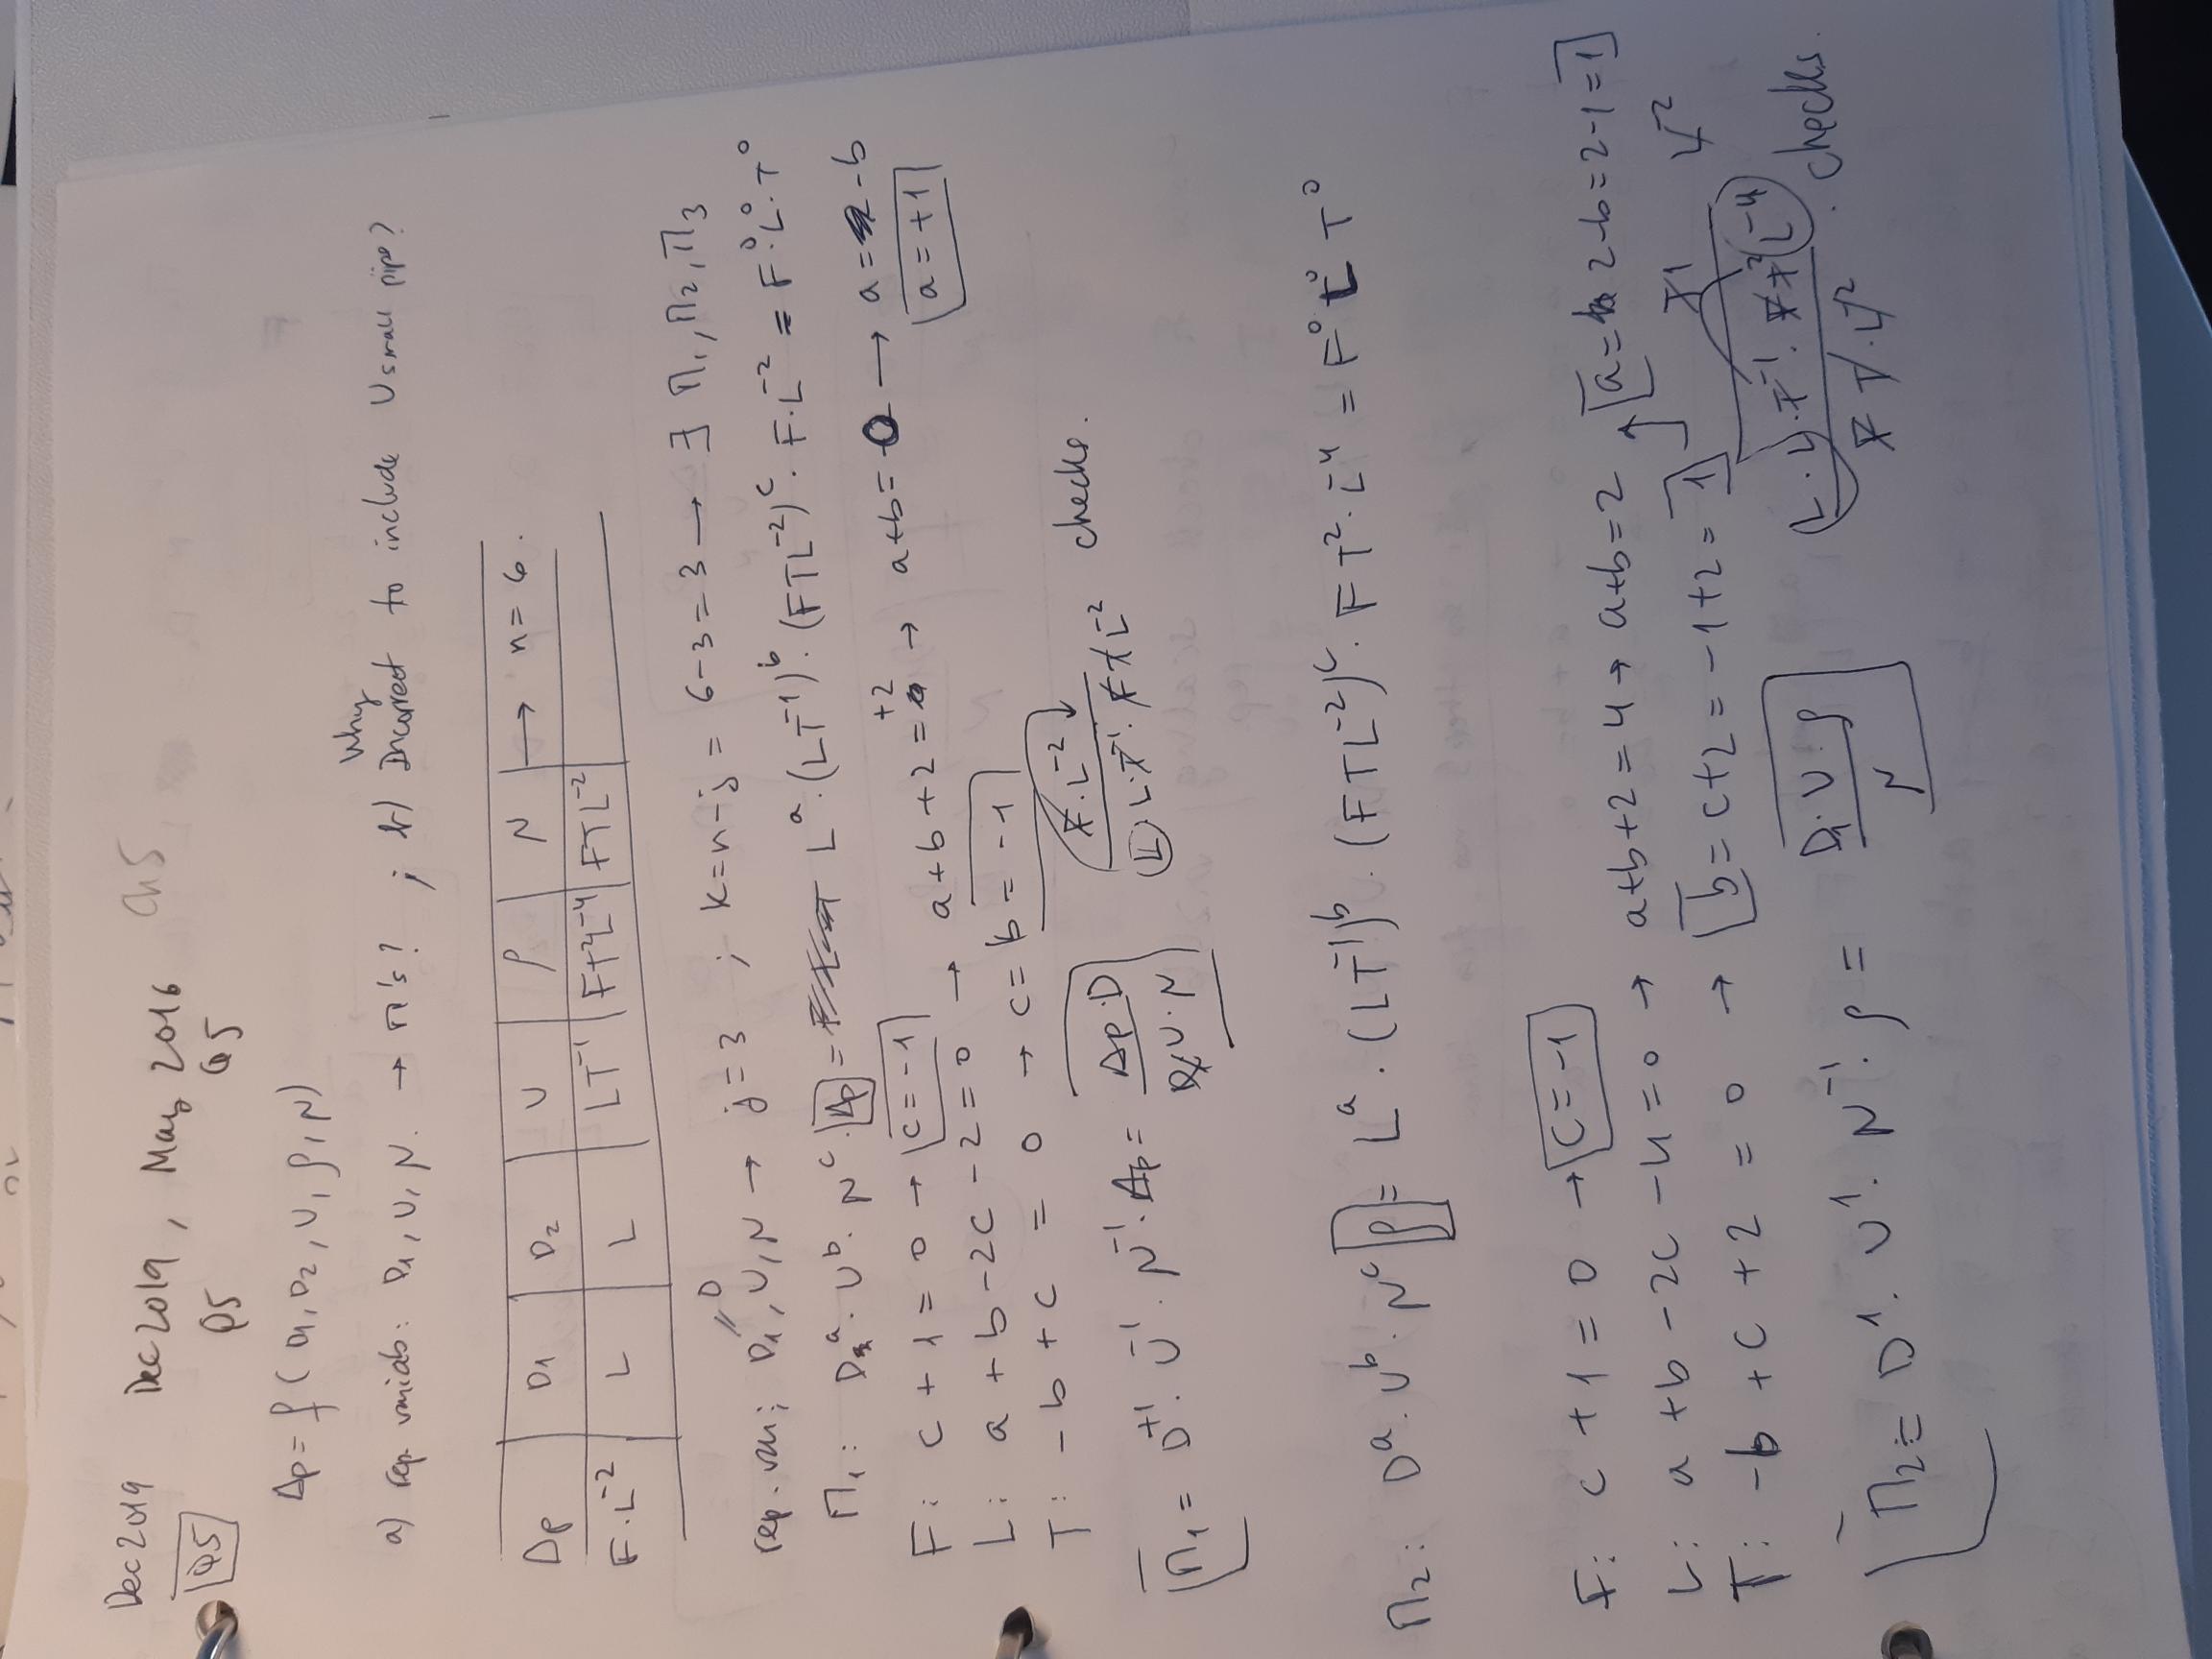 Dec 2019
Q5
Dec 2019, May 2016 Ch 5
Q5 Q5
Δp = f (D1, D2, V, ρ, μ)
a) rep. variab: D1, V, μ. → π's? ; b) Why Incorrect to include V small pipe?
Δp D1 D2 V ρ μ → n = 6.
F·L⁻² L L LT⁻¹ FT²L⁻⁴ FTL⁻²
rep. var; D1 = D, V, μ → j = 3 ; k = n - j = 6 - 3 = 3 → ∃ Π1, Π2, Π3
Π1: Dᵃ · Vᵇ · μᶜ · Δp = Lᵃ · (LT⁻¹)ᵇ · (FTL⁻²)ᶜ · F·L⁻² = F⁰·L⁰·T⁰
F: c + 1 = 0 → c = -1
L: a + b - 2c - 2 = 0 → a + b + 2 = +2 → a + b = 0 → a = -b
a = +1
T: -b + c = 0 → c = b = -1
Π1 = D⁺¹ · V⁻¹ · μ⁻¹ · Δp = Δp·D / V·μ F·L⁻² / L L·T⁻¹ · F T L⁻² checks.
Π2: Dᵃ · Vᵇ · μᶜ ρ = Lᵃ · (LT⁻¹)ᵇ · (FTL⁻²)ᶜ · FT² · L⁻⁴ = F⁰ L⁰ T⁰
F: c + 1 = 0 → c = -1
L: a + b - 2c - 4 = 0 → a + b + 2 = 4 → a + b = 2 a = 2 - b = 2 - 1 = 1
T: -b + c + 2 = 0 → b = c + 2 = -1 + 2 = 1 T1 L⁻²
Π2 = D¹ · V¹ · μ⁻¹ · ρ = D1 · V · ρ / μ L · L · T⁻¹ · F T² L⁻⁴ / F T · L⁻² . checks.